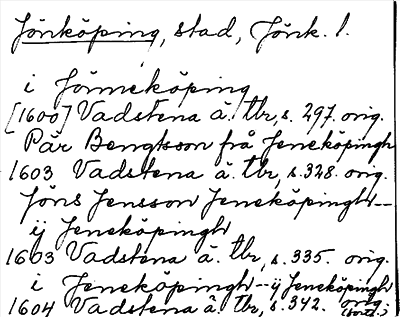 Jönköping, stad, Jönk. l.
i Jönneköping
[1600] Vadstena ä. tbr, s. 297. orig.
Pär Bengtsson frå Jeneköpingh
1603 Vadstena ä. tbr, s. 328. orig.
Jöns Jensson Jeneköpingh--
ij Jeneköpingh
1603 Vadstena ä. tbr, s. 335. orig.
i Jeneköpingh--ij Jeneköpingh
1604 Vadstena ä. tbr, s. 342. orig.